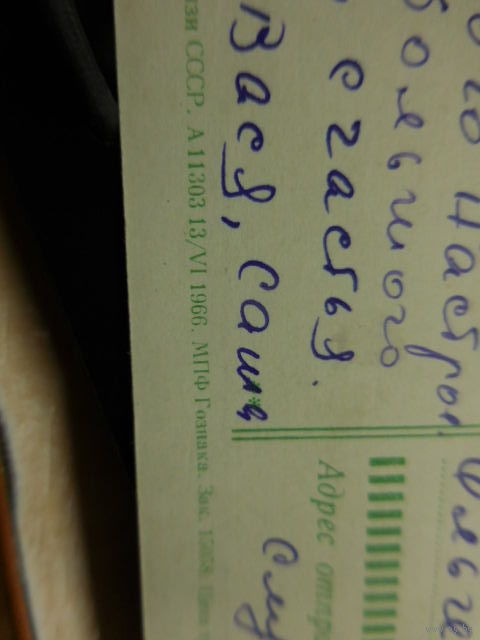 ого Настрое
большого
счастья.
Вася, Саша
язи СССР. А 11303 13/VI 1966. МПФ Гознака. Зак.
Адрес отпра
Слу